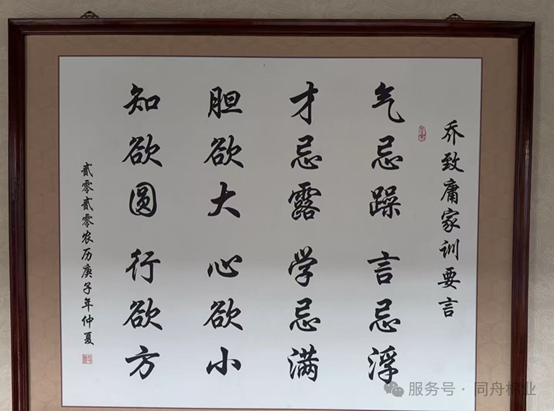 乔致庸家训要言
气忌躁 言忌浮
才忌露 学忌满
胆欲大 心欲小
知欲圆 行欲方
贰零贰零农历庚子年仲夏
服务号·同舟棉业